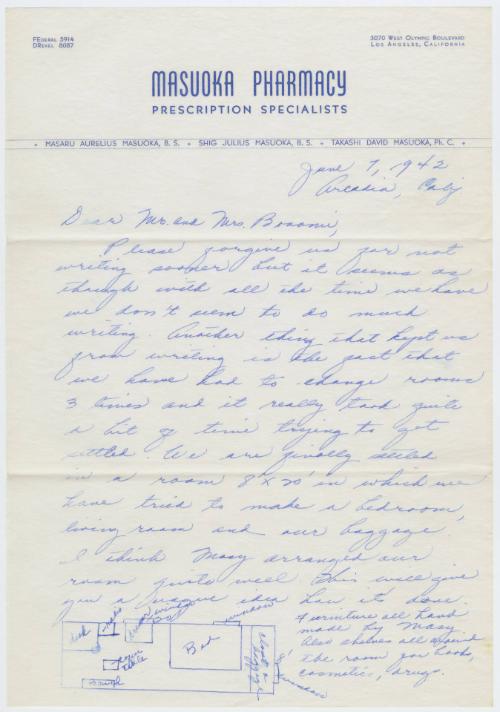 FEderal 5914
DRexel 8087
3070 West Olympic Boulevard
Los Angeles, California
MASUOKA PHARMACY
PRESCRIPTION SPECIALISTS
MASARU AURELIUS MASUOKA, B. S. • SHIG JULIUS MASUOKA, B. S. • TAKASHI DAVID MASUOKA, Ph. C.
June 7, 1942
Arcadia, Calif
Dear Mr. and Mrs. Bonomi,
Please forgive us for not
writing sooner but it seems as
though with all the time we have
we don't seem to do much
writing. Another thing that kept us
from writing is the fact that
we have had to change rooms
3 times and it really took quite
a bit of time trying to get
settled. We are finally settled
in a room 8' x 20' in which we
have tried to make a bedroom,
living room and our baggage.
I think Masy arranged our
room quite well. This will give
you a vague idea how it's done.
Furniture all hand
made by Masy
Also shelves all around
the room for books,
cosmetics, drugs.
window
window
Bed
table
Bench
window